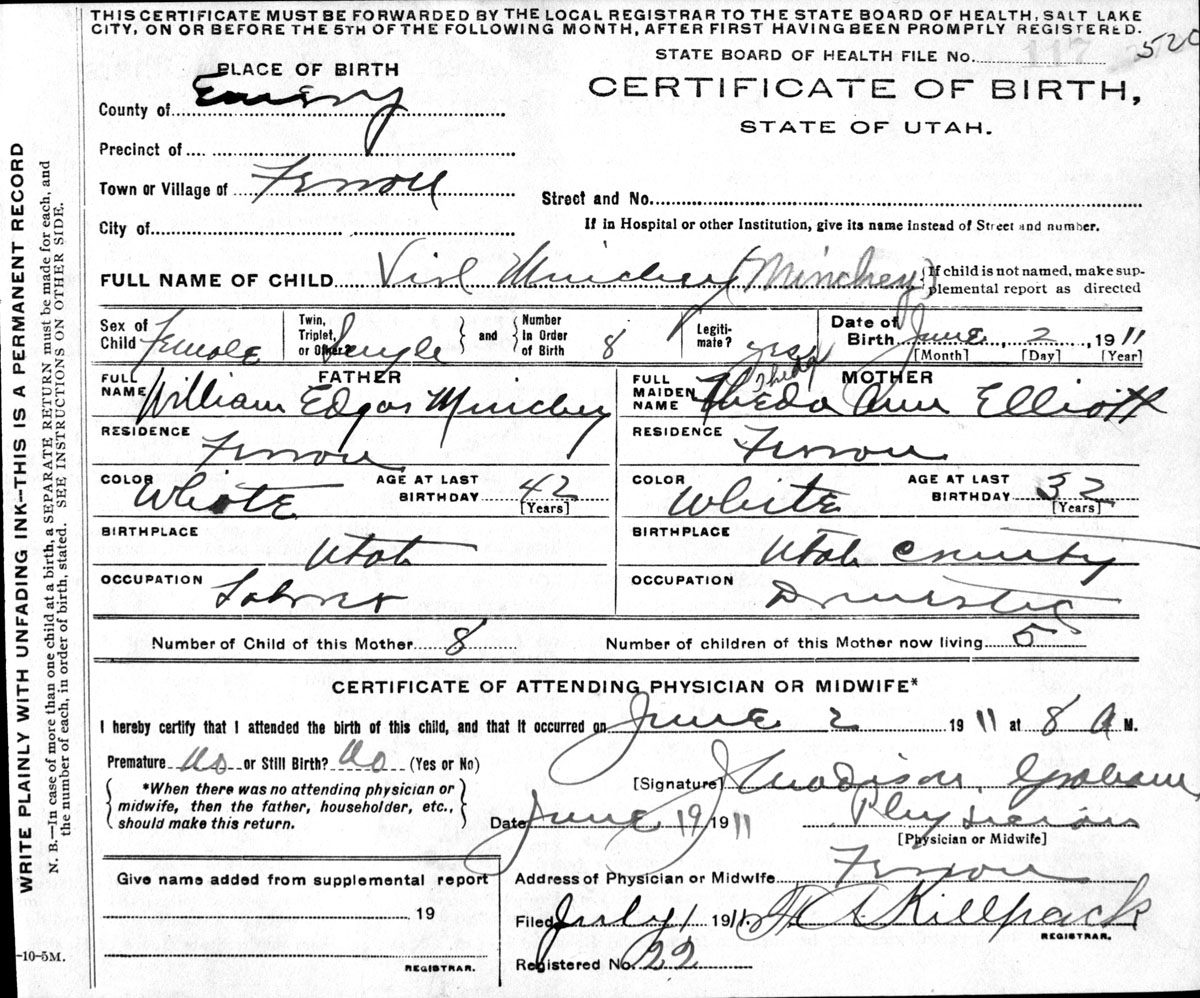 THIS CERTIFICATE MUST BE FORWARDED BY THE LOCAL REGISTRAR TO THE STATE BOARD OF HEALTH, SALT LAKE
CITY, ON OR BEFORE THE 5TH OF THE FOLLOWING MONTH, AFTER FIRST HAVING BEEN PROMPTLY REGISTERED.
STATE BOARD OF HEALTH FILE No. 117 520
PLACE OF BIRTH
CERTIFICATE OF BIRTH,
STATE OF UTAH.
County of Emery
Precinct of
Town or Village of Ferron
Street and No.
City of
If in Hospital or other Institution, give its name instead of Street and number.
FULL NAME OF CHILD Virl Minchey (Minchey) If child is not named, make sup-
plemental report as directed
Sex of Child Female Twin, Triplet, or Other? Single and Number In Order of Birth 8 Legiti-mate? yes Date of Birth June 2, 1911
[Month] [Day] [Year]
FATHER
FULL NAME William Edgar Minchey
MOTHER
FULL MAIDEN NAME Theda Ann Elliott
Theda
RESIDENCE Ferron
RESIDENCE Ferron
COLOR White AGE AT LAST BIRTHDAY 42 [Years]
COLOR White AGE AT LAST BIRTHDAY 32 [Years]
BIRTHPLACE Utah
BIRTHPLACE Utah County
OCCUPATION Laborer
OCCUPATION Domestic
Number of Child of this Mother 8 Number of children of this Mother now living 5
CERTIFICATE OF ATTENDING PHYSICIAN OR MIDWIFE*
I hereby certify that I attended the birth of this child, and that it occurred on June 2 1911 at 8 A M.
Premature No or Still Birth? No (Yes or No)
*When there was no attending physician or
midwife, then the father, householder, etc.,
should make this return.
[Signature] J Madison Graham,
Date June 19 1911 Physician
[Physician or Midwife]
Give name added from supplemental report
19
REGISTRAR.
Address of Physician or Midwife Ferron
Filed July 1 1911. Killpack
REGISTRAR.
Registered No. 22
-10-5M.
WRITE PLAINLY WITH UNFADING INK--THIS IS A PERMANENT RECORD
N. B.—In case of more than one child at a birth, a SEPARATE RETURN must be made for each, and
the number of each, in order of birth, stated. SEE INSTRUCTIONS ON OTHER SIDE.